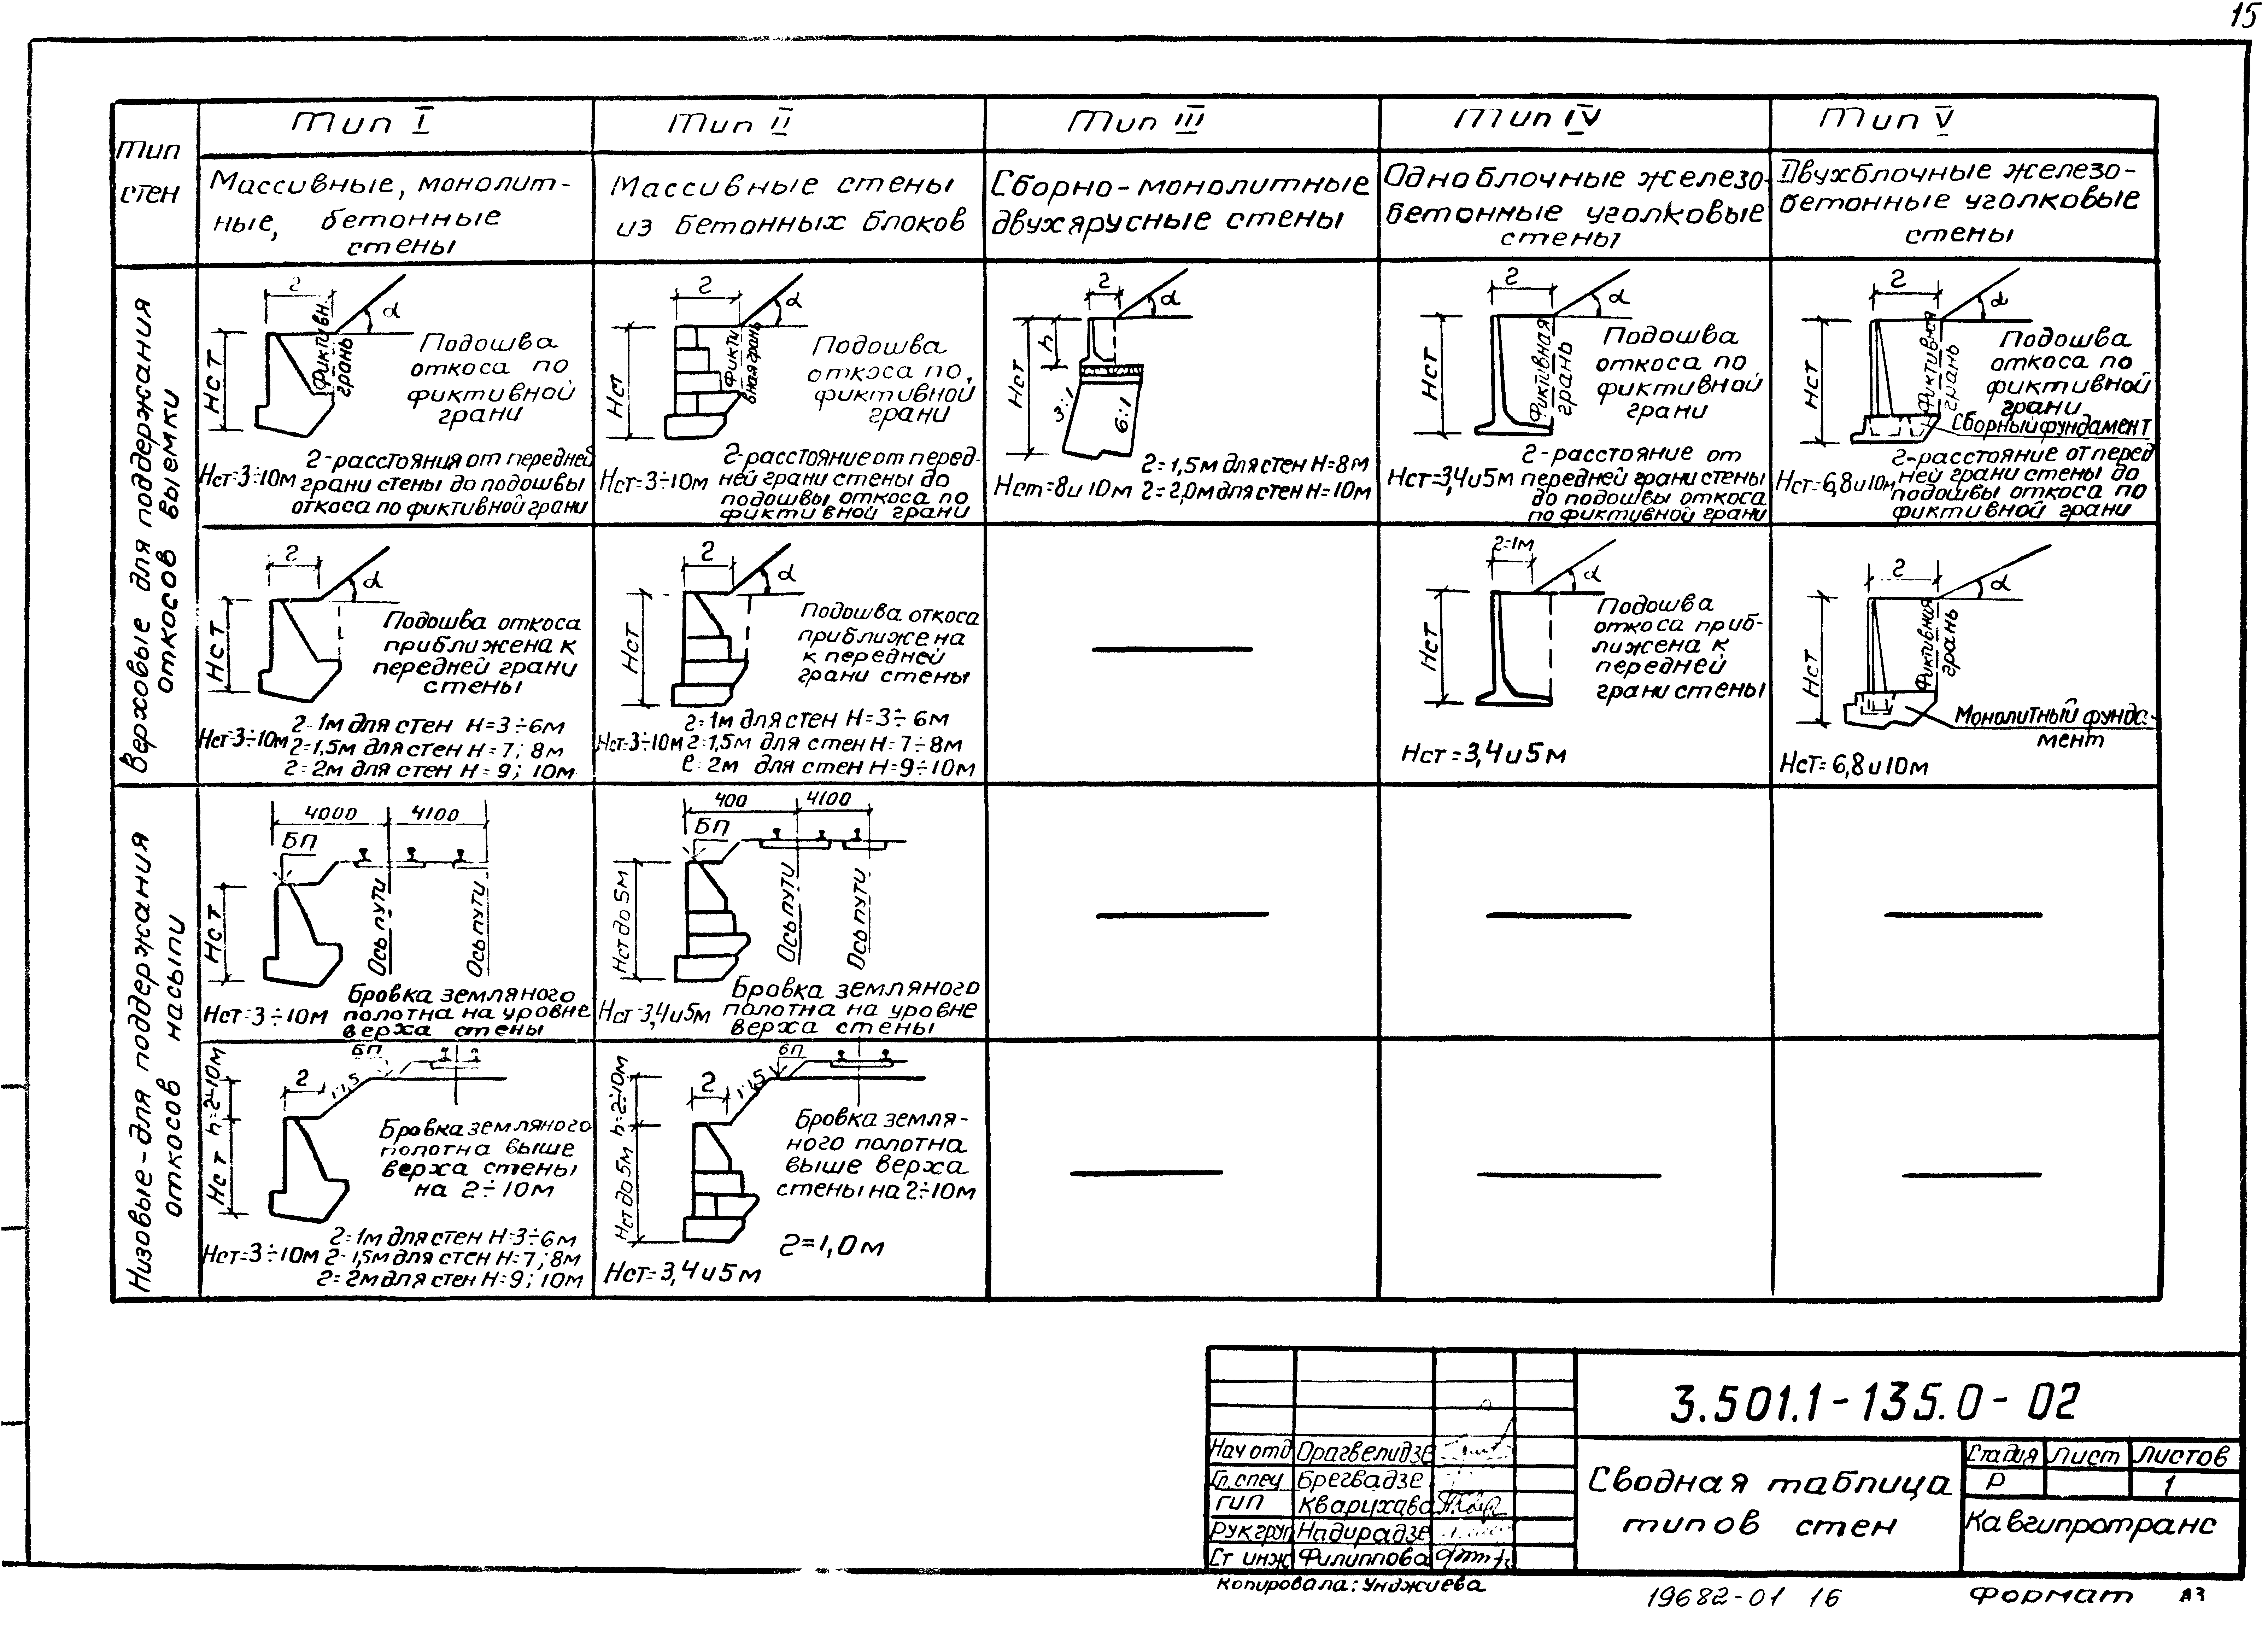 15
Тип стен
Тип I
Тип II
Тип III
Тип IV
Тип V
Массивные, монолит-
ные, бетонные
стены
Массивные стены
из бетонных блоков
Сборно-монолитные
двухярусные стены
Одноблочные железо-
бетонные уголковые
стены
Двухблочные железо-
бетонные уголковые
стены
Верховые для поддержания
откосов выемки
г
α
Нст
Фиктивн.
грань
Подошва
откоса по
фиктивной
грани
Нст=3÷10м
г-расстояния от передней
грани стены до подошвы
откоса по фиктивной грани
г
α
Нст
Фикти
вная грань
Подошва
откоса по
фиктивной
грани
Нст=3÷10м
г-расстояние от перед-
ней грани стены до
подошвы откоса по
фиктивной грани
г
α
Нст
h
3:1
6:1
Нст=8и 10м
г=1,5м для стен Н=8м
г=2,0м для стен Н=10м
г
α
Нст
Фиктивная
грань
Подошва
откоса по
фиктивной
грани
Нст=3,4и5м
г-расстояние от
передней грани стены
до подошвы откоса
по фиктивной грани
г
α
Нст
Фиктивная
грань
Подошва
откоса по
фиктивной
грани
Сборный фундамент
Нст=6,8и10м
г-расстояние от перед
ней грани стены до
подошвы откоса по
фиктивной грани
г
α
Нст
Подошва откоса
приближена к
передней грани
стены
Нст=3÷10м
г=1м для стен Н=3÷6м
г=1,5м для стен Н=7; 8м
г=2м для стен Н=9; 10м
г
α
Нст
Подошва откоса
приближена
к передней
грани стены
Нст=3÷10м
г=1м для стен Н=3÷6м
г=1,5м для стен Н=7÷8м
г=2м для стен Н=9÷10м
г=1м
α
Нст
Подошва
откоса приб-
лижена к
передней
грани стены
Нст=3,4и5м
г
α
Нст
Фиктивная
грань
Монолитный фунда-
мент
Нст=6,8и10м
Низовые-для поддержания
откосов насыпи
4000
4100
БП
Нст
Ось пути
Ось пути
Нст=3÷10м
Бровка земляного
полотна на уровне
верха стены
400
4100
БП
Нст до 5м
Ось пути
Ось пути
Нст=3,4и5м
Бровка земляного
полотна на уровне
верха стены
БП
h=2÷10м
г
1:1,5
Нст
Бровка земляного
полотна выше
верха стены
на 2÷10м
Нст=3÷10м
г=1м для стен Н=3÷6м
г=1,5м для стен Н=7; 8м
г=2м для стен Н=9; 10м
БП
h=2÷10м
г
1:1,5
Нст до 5м
Бровка земля-
ного полотна
выше верха
стены на 2÷10м
г=1,0м
Нст=3,4и5м
3.501.1-135.0-02
Нач отд Орагвелидзе
Гл. спец Брегвадзе
ГИП Кварихава
Рук груп Надирадзе
Ст инж Филиппова
Сводная таблица
типов стен
Стадия Лист Листов
Р 1
Кавгипротранс
Копировала: Унджиева
19682-01 16
Формат А3